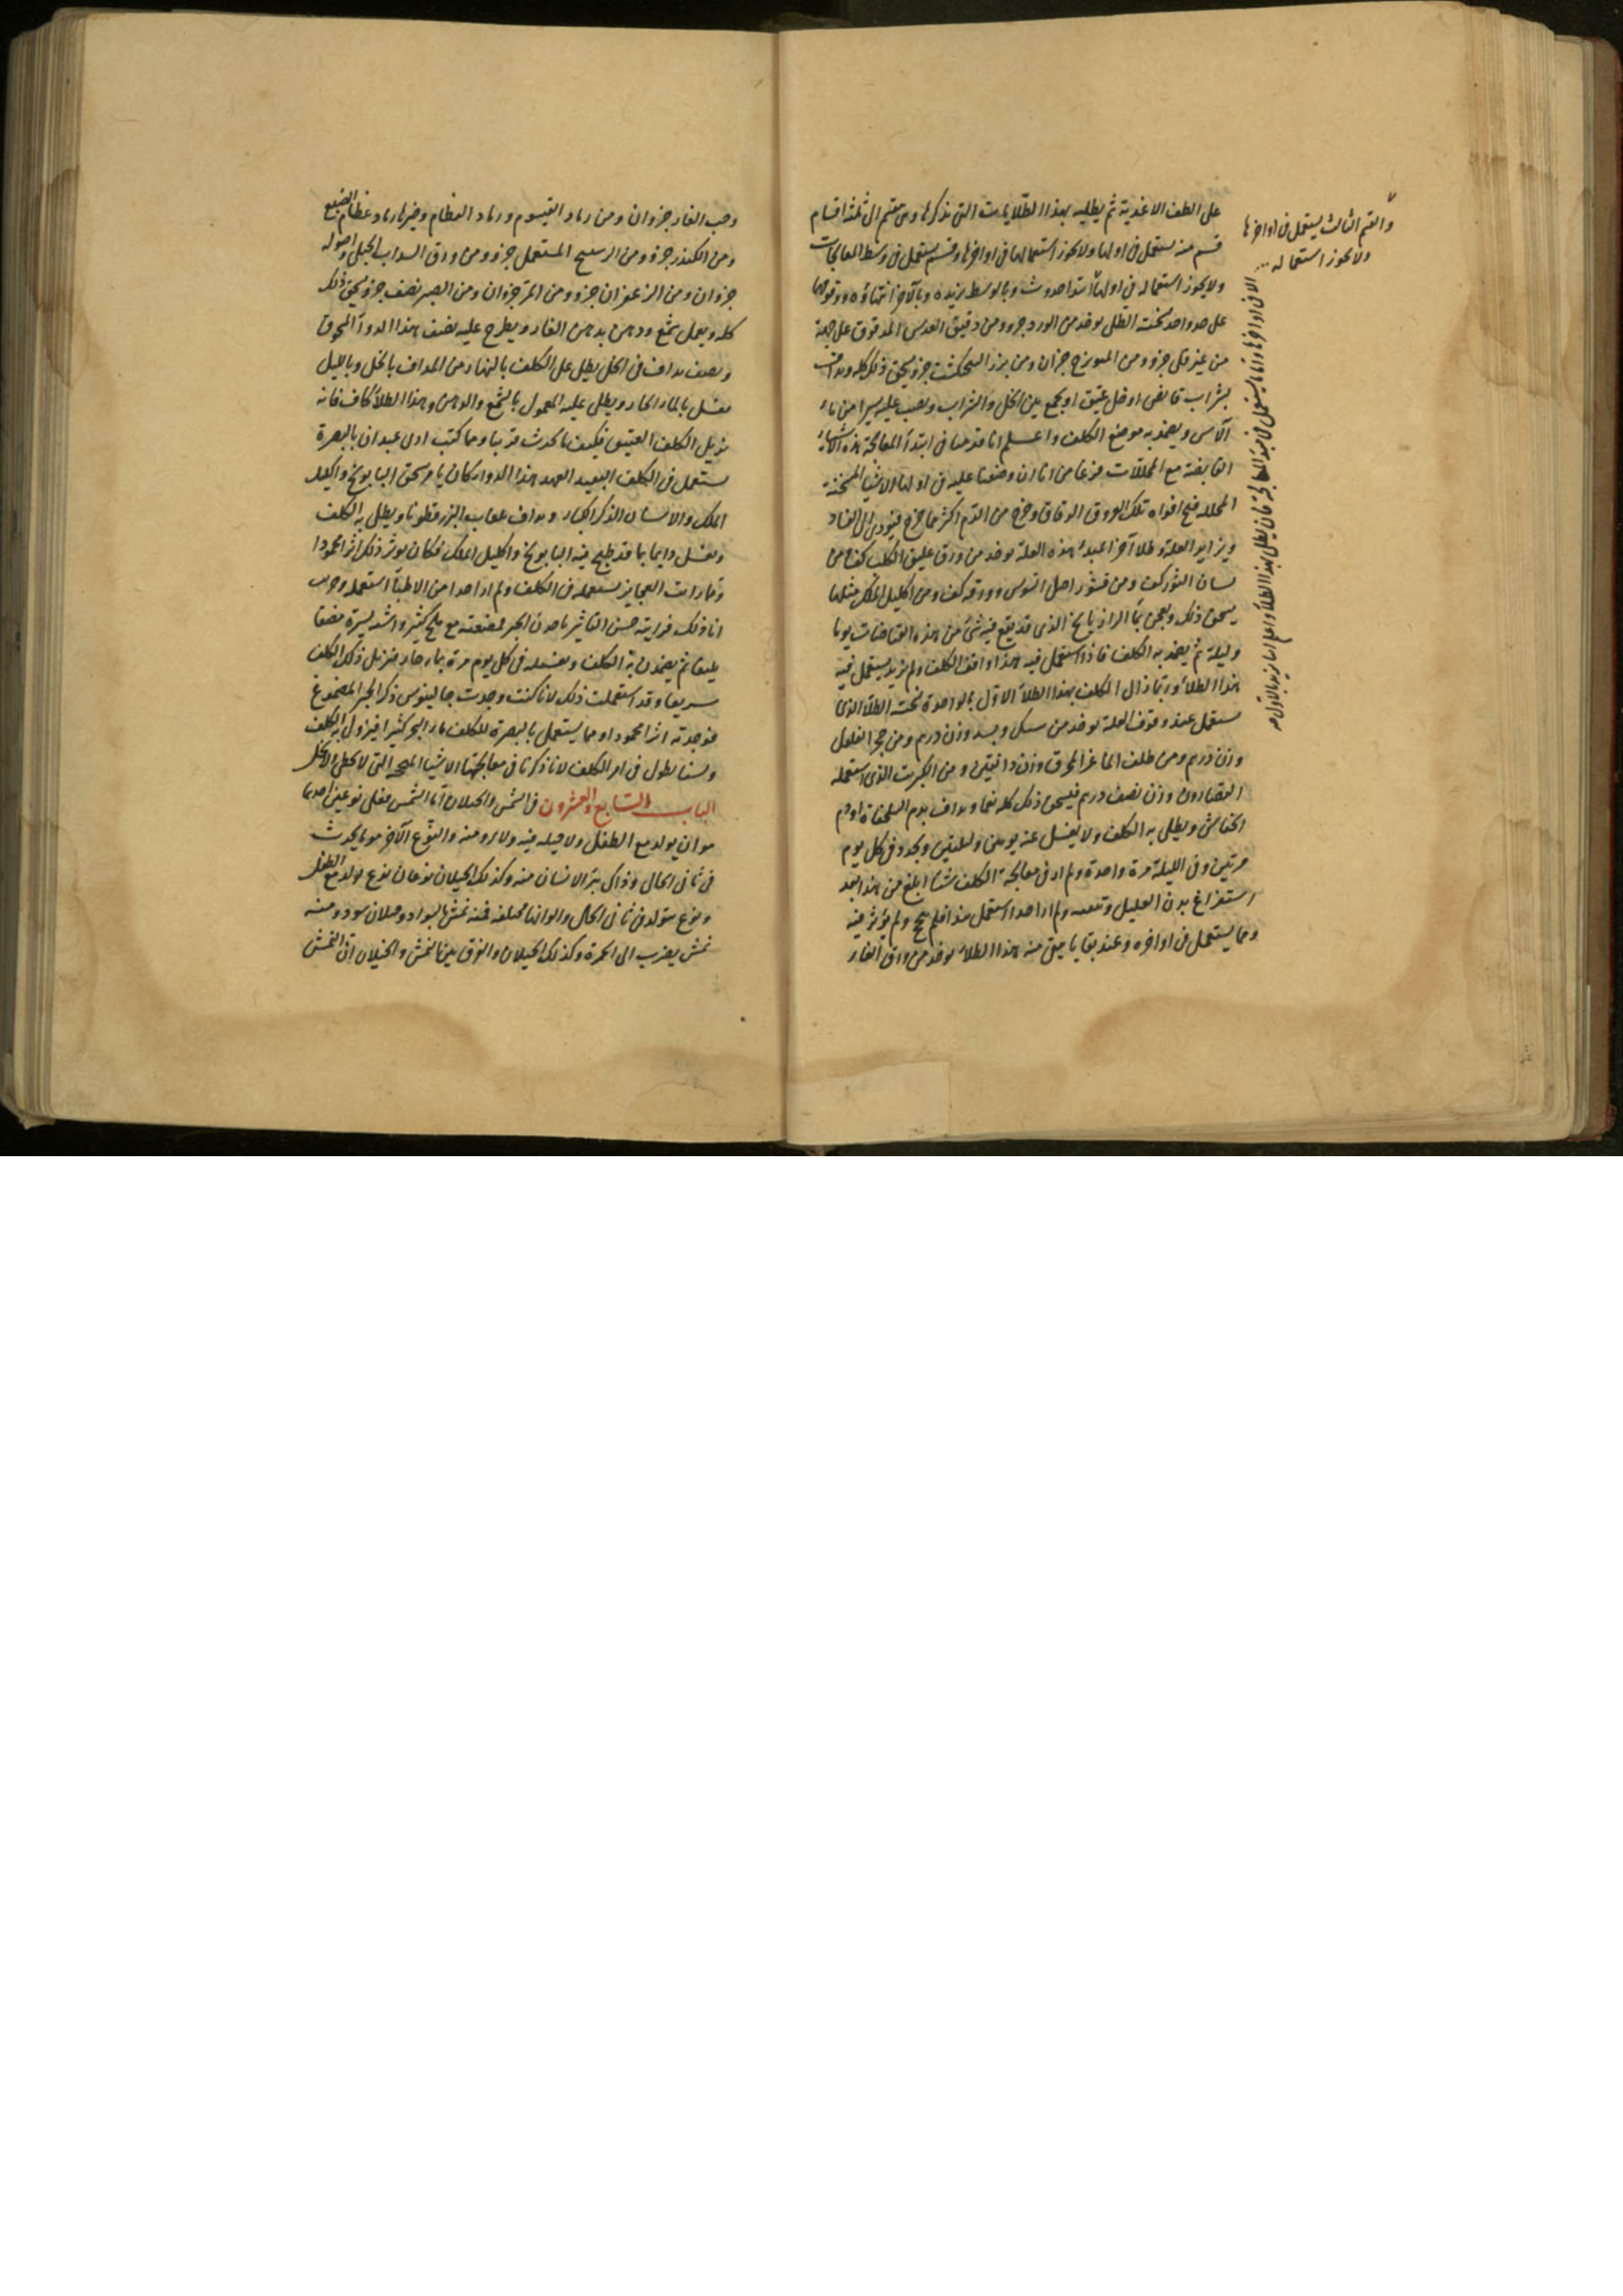 على الطف الاغذية ثم يطليه بهذا الطلايات التى نذكرها وهى تنقسم الى ثلثة اقسام
قسم منه يستعمل فى اولها ولا يجوز استعمالها فى اواخرها وقسم يستعمل فى وسط المعالجات
ولا يجوز استعماله فى اولها
على حد واحد نسخة الطلى يوخذ من الورد جزو ومن دقيق العدس المدقوق على جهة
من غير قلى جزو ومن الميويزج جزان ومن بزر البنجنكشت جزو يسحق ذلك كله ويداف
بشراب قابض او خل عتيق او يجمع بين الخل والشراب ويصب عليه يسيرا من ماء
الآس ويضمد به موضع الكلف واعلم انا قدمنا فى ابتدآ المعالجة هذه الاشياء
القابضة مع المحللات فزعا من انا ان وضعنا عليه فى اولها الاشيا المسخنة
المحللة فتح افواه تلك العروق الدقاق وخرج من الدم اكثر مما خرج فيودى الى الفساد
ويزايد العلة وطلا آخر لمبدء هذه العلة يوخذ من ورق عليق الكلب كف ومن
لسان الثور كف ومن قشور اصل السوس وورقه كف ومن اكليل الملك مثلها
يسحق ذلك ويعجن بمآ الرازيانج الذى قد نقع فيه شئ من هذه القابضات يوما
وليلة ثم يضمد به الكلف فاذا استعمل فيه هذا واقف الكلف ولم يزيد يستعمل فيه
هذا الطلاء وربما زال الكلف بهذا الطلاء الاول بالواحدة نسخة الطلاء الذى
يستعمل عند وقوف العلة يوخذ من سك وبسد وزن درهم ومن حجر الفلفل
وزن درهم ومن ظلف الماعز المحرق وزن دانقين ومن الكبريت الذى استعمله
القصارون وزن نصف درهم فيسحق ذلك كله نعما ويداف بدم السلحفاة او دم
الخفاش ويطلى به الكلف ولا يغسل عنه يومين وليلتين ويجدد فى كل يوم
مرتين وفى الليلة مرة واحدة ولم ار فى معالجة الكلف شيئا ابلغ من هذا بعد
استفراغ بدن العليل وتنقيته ولم ار احدا استعمل هذا فلم ينجح ولم يؤثر فيه
ومما يستعمل فى اواخره وعند بقايا ما بقى منه هذا الطلاء يوخذ من ورق الغار
والقسم الثالث يستعمل فى اواخرها
ولا يجوز استعماله
الا فى اواخرها
وحب الغار جزوان ومن رماد القيسوم ورماد العظام وخيرها رماد عظام الضبع
ومن الكندر جزو ومن الزرنيخ المستعمل جزو ومن ورق السداب الجبلى واصوله
جزوان ومن الزعفران جزو ومن المر جزوان ومن الصبر نصف جزو يسحق ذلك
كله ويعمل شمع ودهن بدهن الغار ويطرح عليه نصف هذا الدوآ المسحوق
ونصف يداف فى الخل يطلى على الكلف بالنهار من المداف بالخل وبالليل
يغسل بالماء الحار ويطلى عليه المعمول بالشمع والدهن وهذا الطلاء كاف فانه
يزيل الكلف العتيق فكيف ما يحدث قريبا ومما كنت ارى عبدان بالبصرة
يستعمل فى الكلف البعيد العهد هذا الدوا وكان يامر بسحق البابونج واكليل
الملك والاشنان الذكر الكبار ويداف بلعاب البزر قطونا ويطلى به الكلف
ويغسل دايما بما قد طبخ فيه البابونج واكليل الملك فكان يوثر ذلك اثرا محمودا
ومما رايت العجايز يستعمله فى الكلف ولم ار احدا من الاطبآ استعمله وجربت
انا ذلك فرايته حسن التاثير ياخذن الخبز فمضغته مع ملح كثير واشنه يسيرة مضغا
بليغا ثم يضمدن به الكلف ويغسله فى كل يوم مرة بماء حار فيزيل ذلك الكلف
سريعا وقد استعملت ذلك لانا كنت وجدت جالينوس ذكر الخبز الممضوغ
فوجدته اثرا محمودا ومما يستعمل بالبصرة للكلف ماء البحر كثيرا فيزول به الكلف
ولسنا نطول فى امر الكلف لانا ذكرنا فى معالجتها الاشيا المنجحة التى لا تخطى ولا تخل
الباب السابع والعشرون فى النمش والخيلان اما النمش فعلى نوعين احدهما
هو ان يولد مع الطفل ولا حيلة فيه ولا برو منه والنوع الآخر هو ما يحدث
فى ثانى الحال وذاك يبرأ الانسان منه وكذلك الخيلان نوعان نوع يولد مع الطفل
ونوع يتولد فى ثانى الحال والوانها مختلفة فمنه نمش بالسواد وخيلان سود ومنه
نمش يضرب الى الحمرة وكذلك الخيلان والفرق بين النمش والخيلان ان النمش